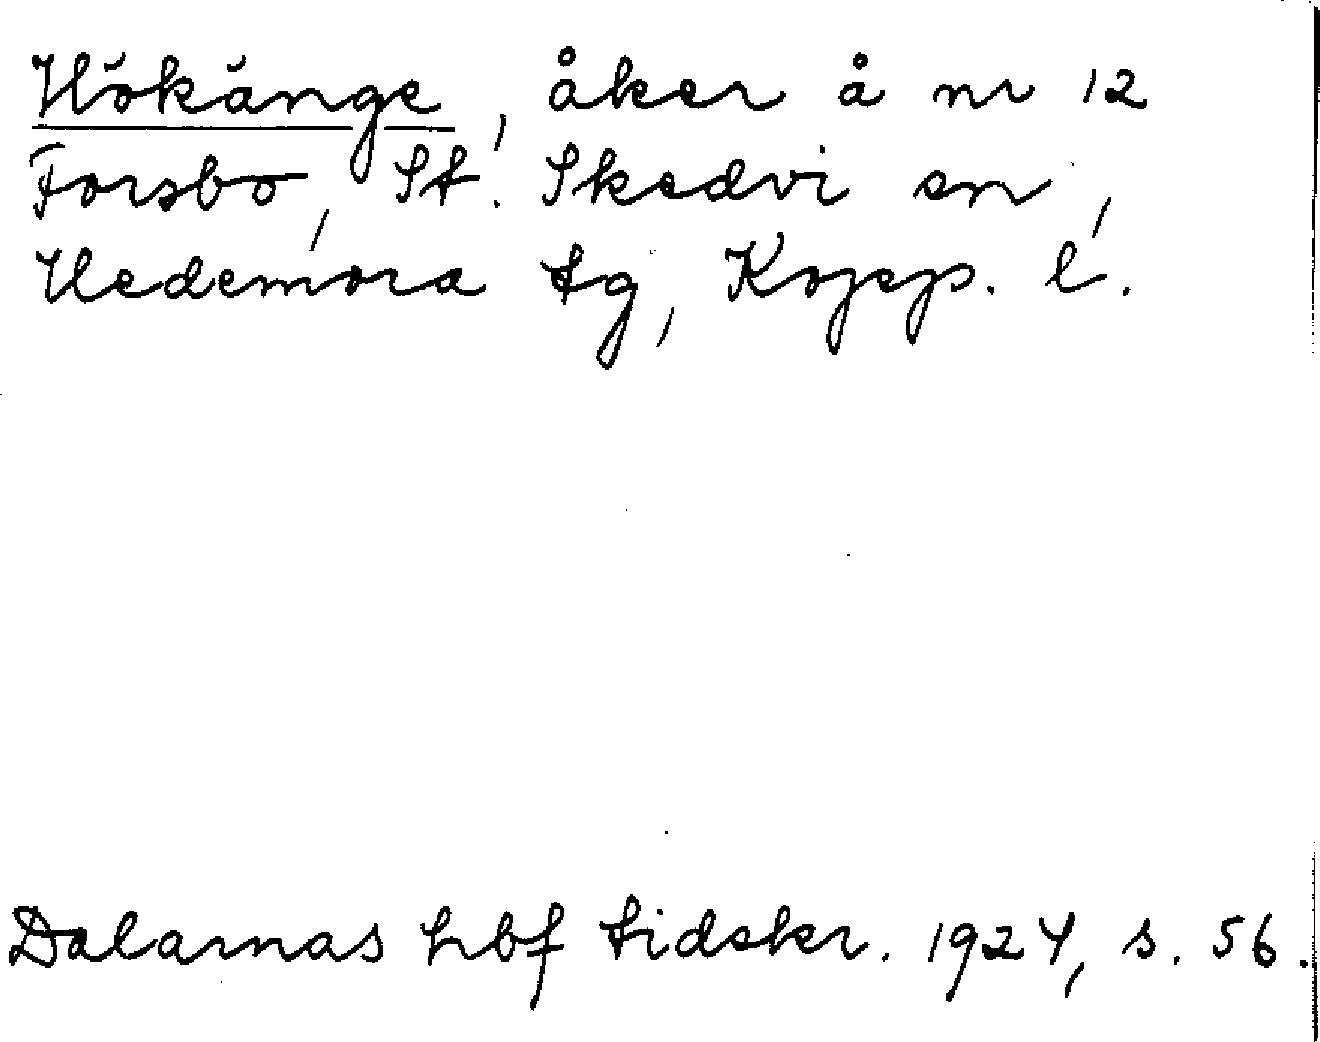 Hökänge, åker å nr 12
Forsbo, St. Skedvi sn,
Hedemora tg, Kopp. l.
Dalarnas hbf tidskr. 1924, s. 56.